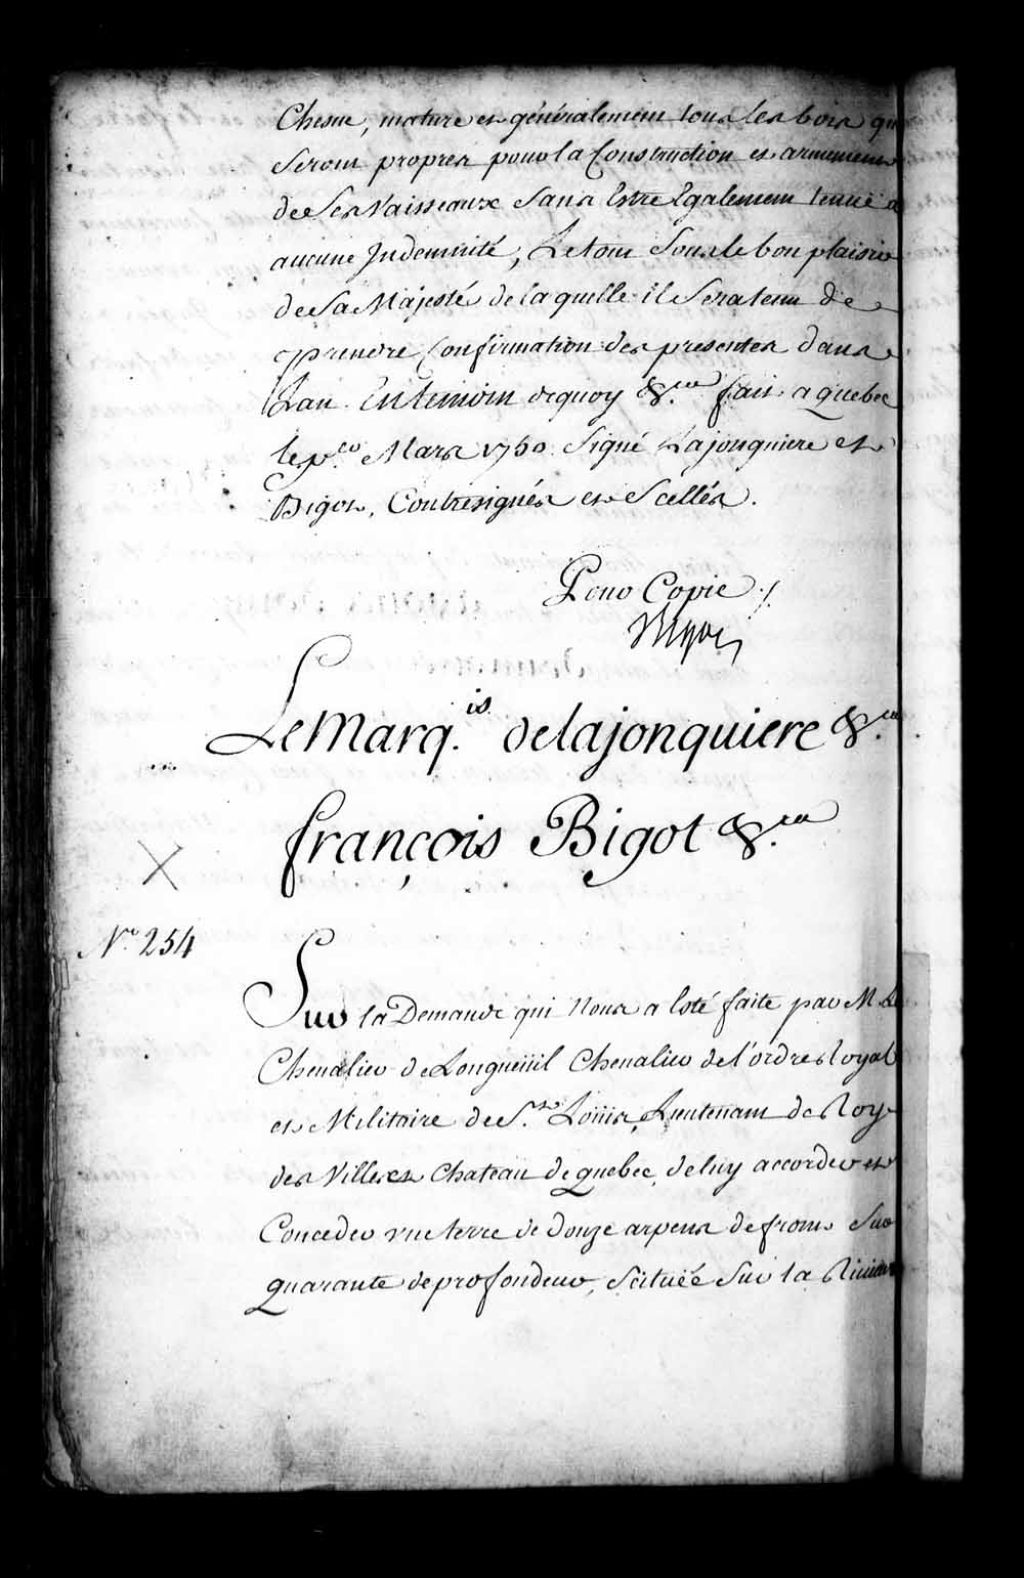 Chesne, mature et généralement tous les bois qui
Seront propres pour la Construction et armement
de Ses Vaisseaux Sans Estre Egalement tenue a
aucune Indemnité, Le tout Sous le bon plaisir
de Sa Majesté de laquelle il Sera tenu de
prendre Confirmation des presentes dans
L'an. En temoin de quoy &.ca fait a quebec
le p.er Mars 1750. Signé Lajonquiere et
Bigot, Contresignés et Scellés.
Pour Copie ./.
Bigot
Le Marq.is de lajonquiere &.ca
françois Bigot &.ca
N.o 254
Sur la Demande qui Nous a Esté faite par M. Le
Chevalier de Longueüil Chevalier de l'ordre Royal
et Militaire de S.t Loüis, Lieutenant de Roy
des Ville et Chateau de quebec, de luy accorder et
Conceder une terre de douze arpens de front Sur
quarante de profondeur, Scituée Sur la Riviere